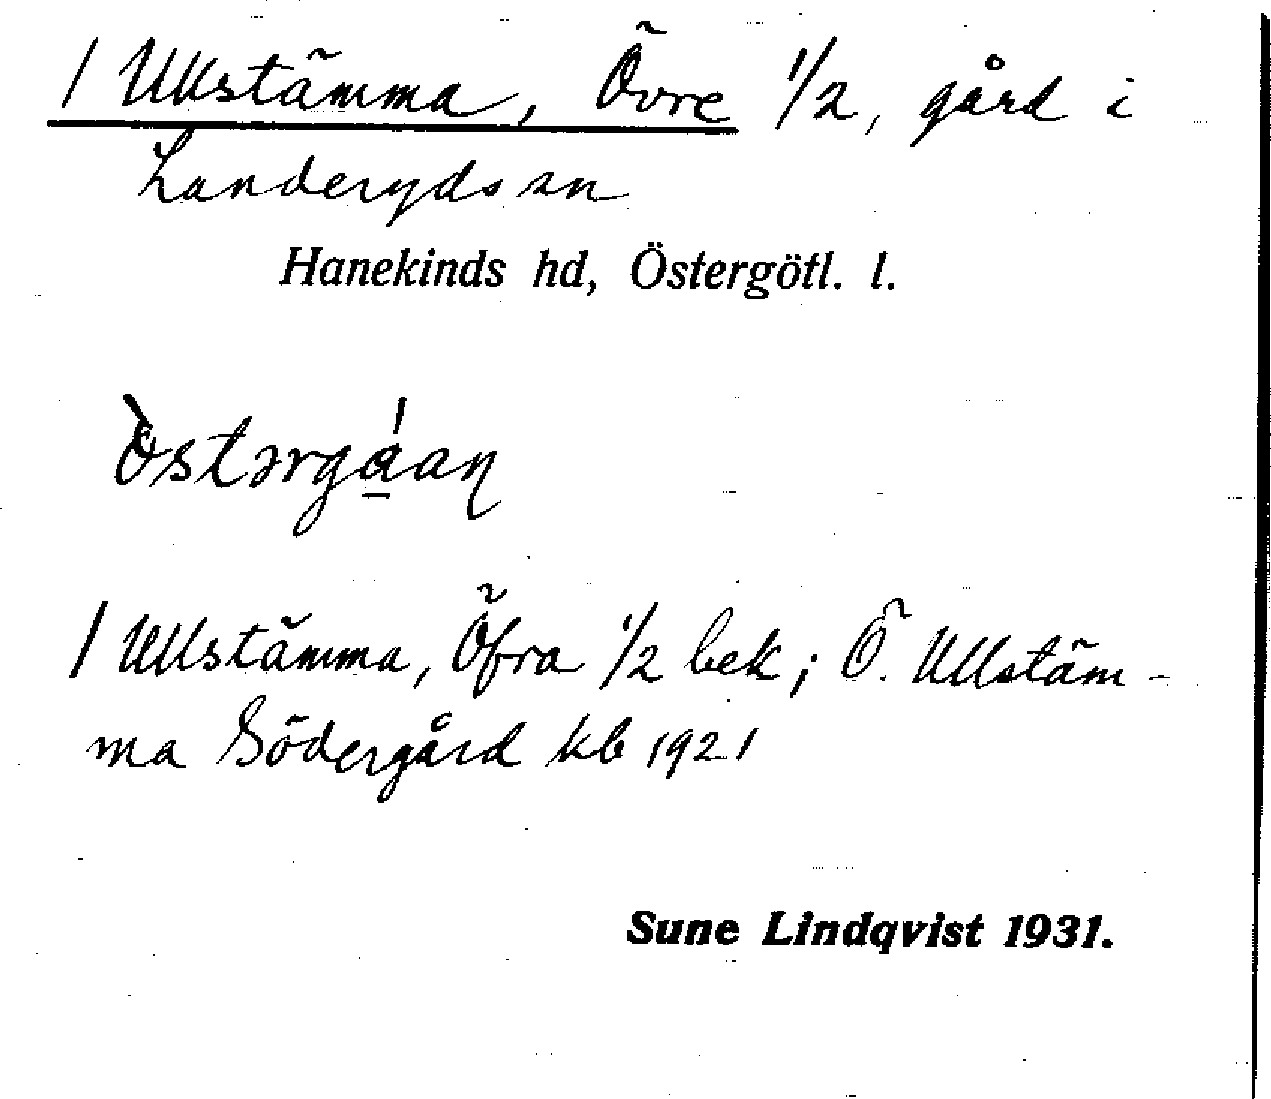 / Ullstämma, Övre 1/2, gård i
Landeryds sn
Hanekinds hd, Östergötl. l.
/ Ullstämma, Öfra 1/2 bek; Ö. Ullstäm-
ma Södergård kb 1921
Sune Lindqvist 1931.